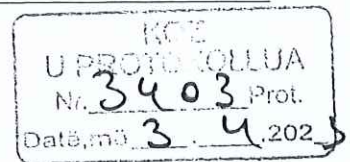 U PROTOKOLLUA
Nr. 3403 Prot.
Datë,më 3.4.202